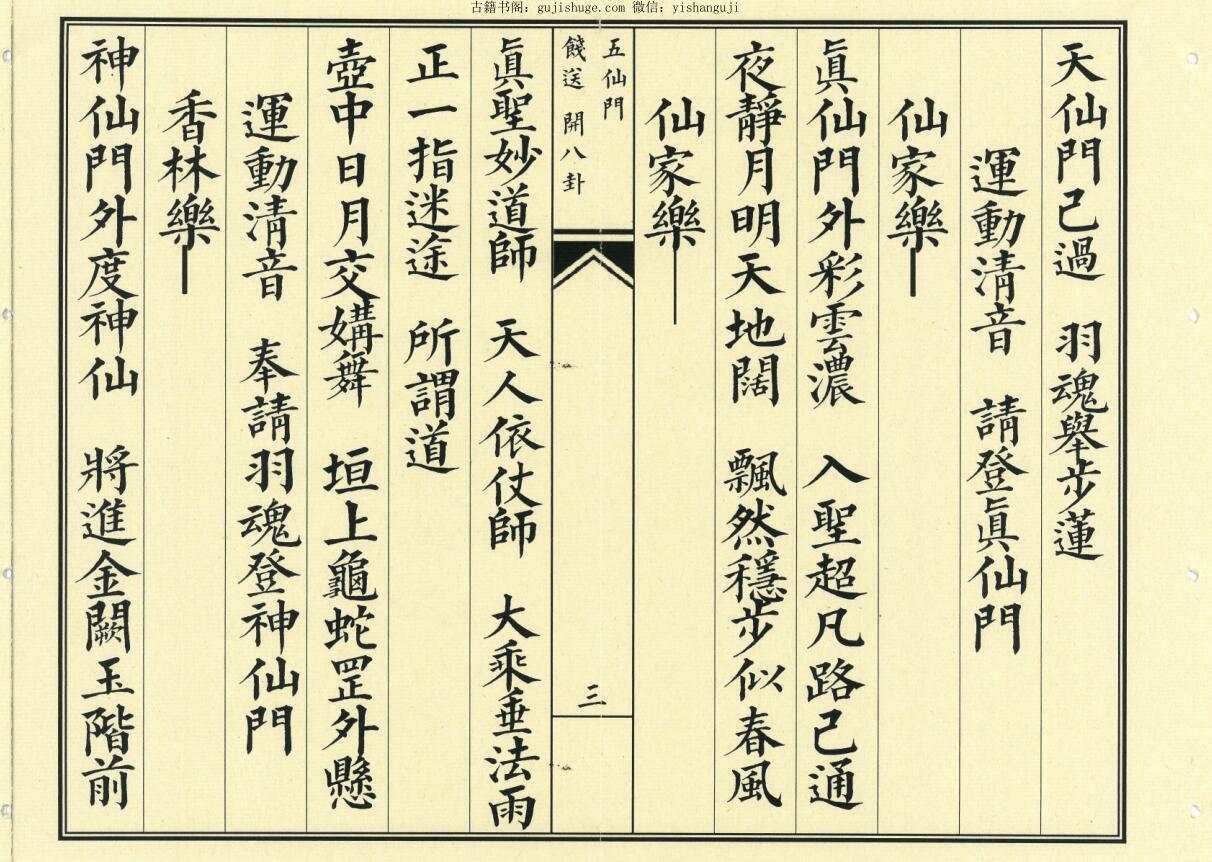 古籍书阁：gujishuge.com 微信：yishanguji
天仙門己過　羽魂舉步蓮
運動清音　請登眞仙門
仙家樂
眞仙門外彩雲濃　入聖超凡路己通
夜靜月明天地闊　飄然穩步似春風
仙家樂
五仙門
餞送　開八卦
三
眞聖妙道師　天人依仗師　大乘垂法雨
正一指迷途　所謂道
壺中日月交媾舞　垣上龜蛇罡外懸
運動清音　奉請羽魂登神仙門
香林樂
神仙門外度神仙　將進金闕玉階前